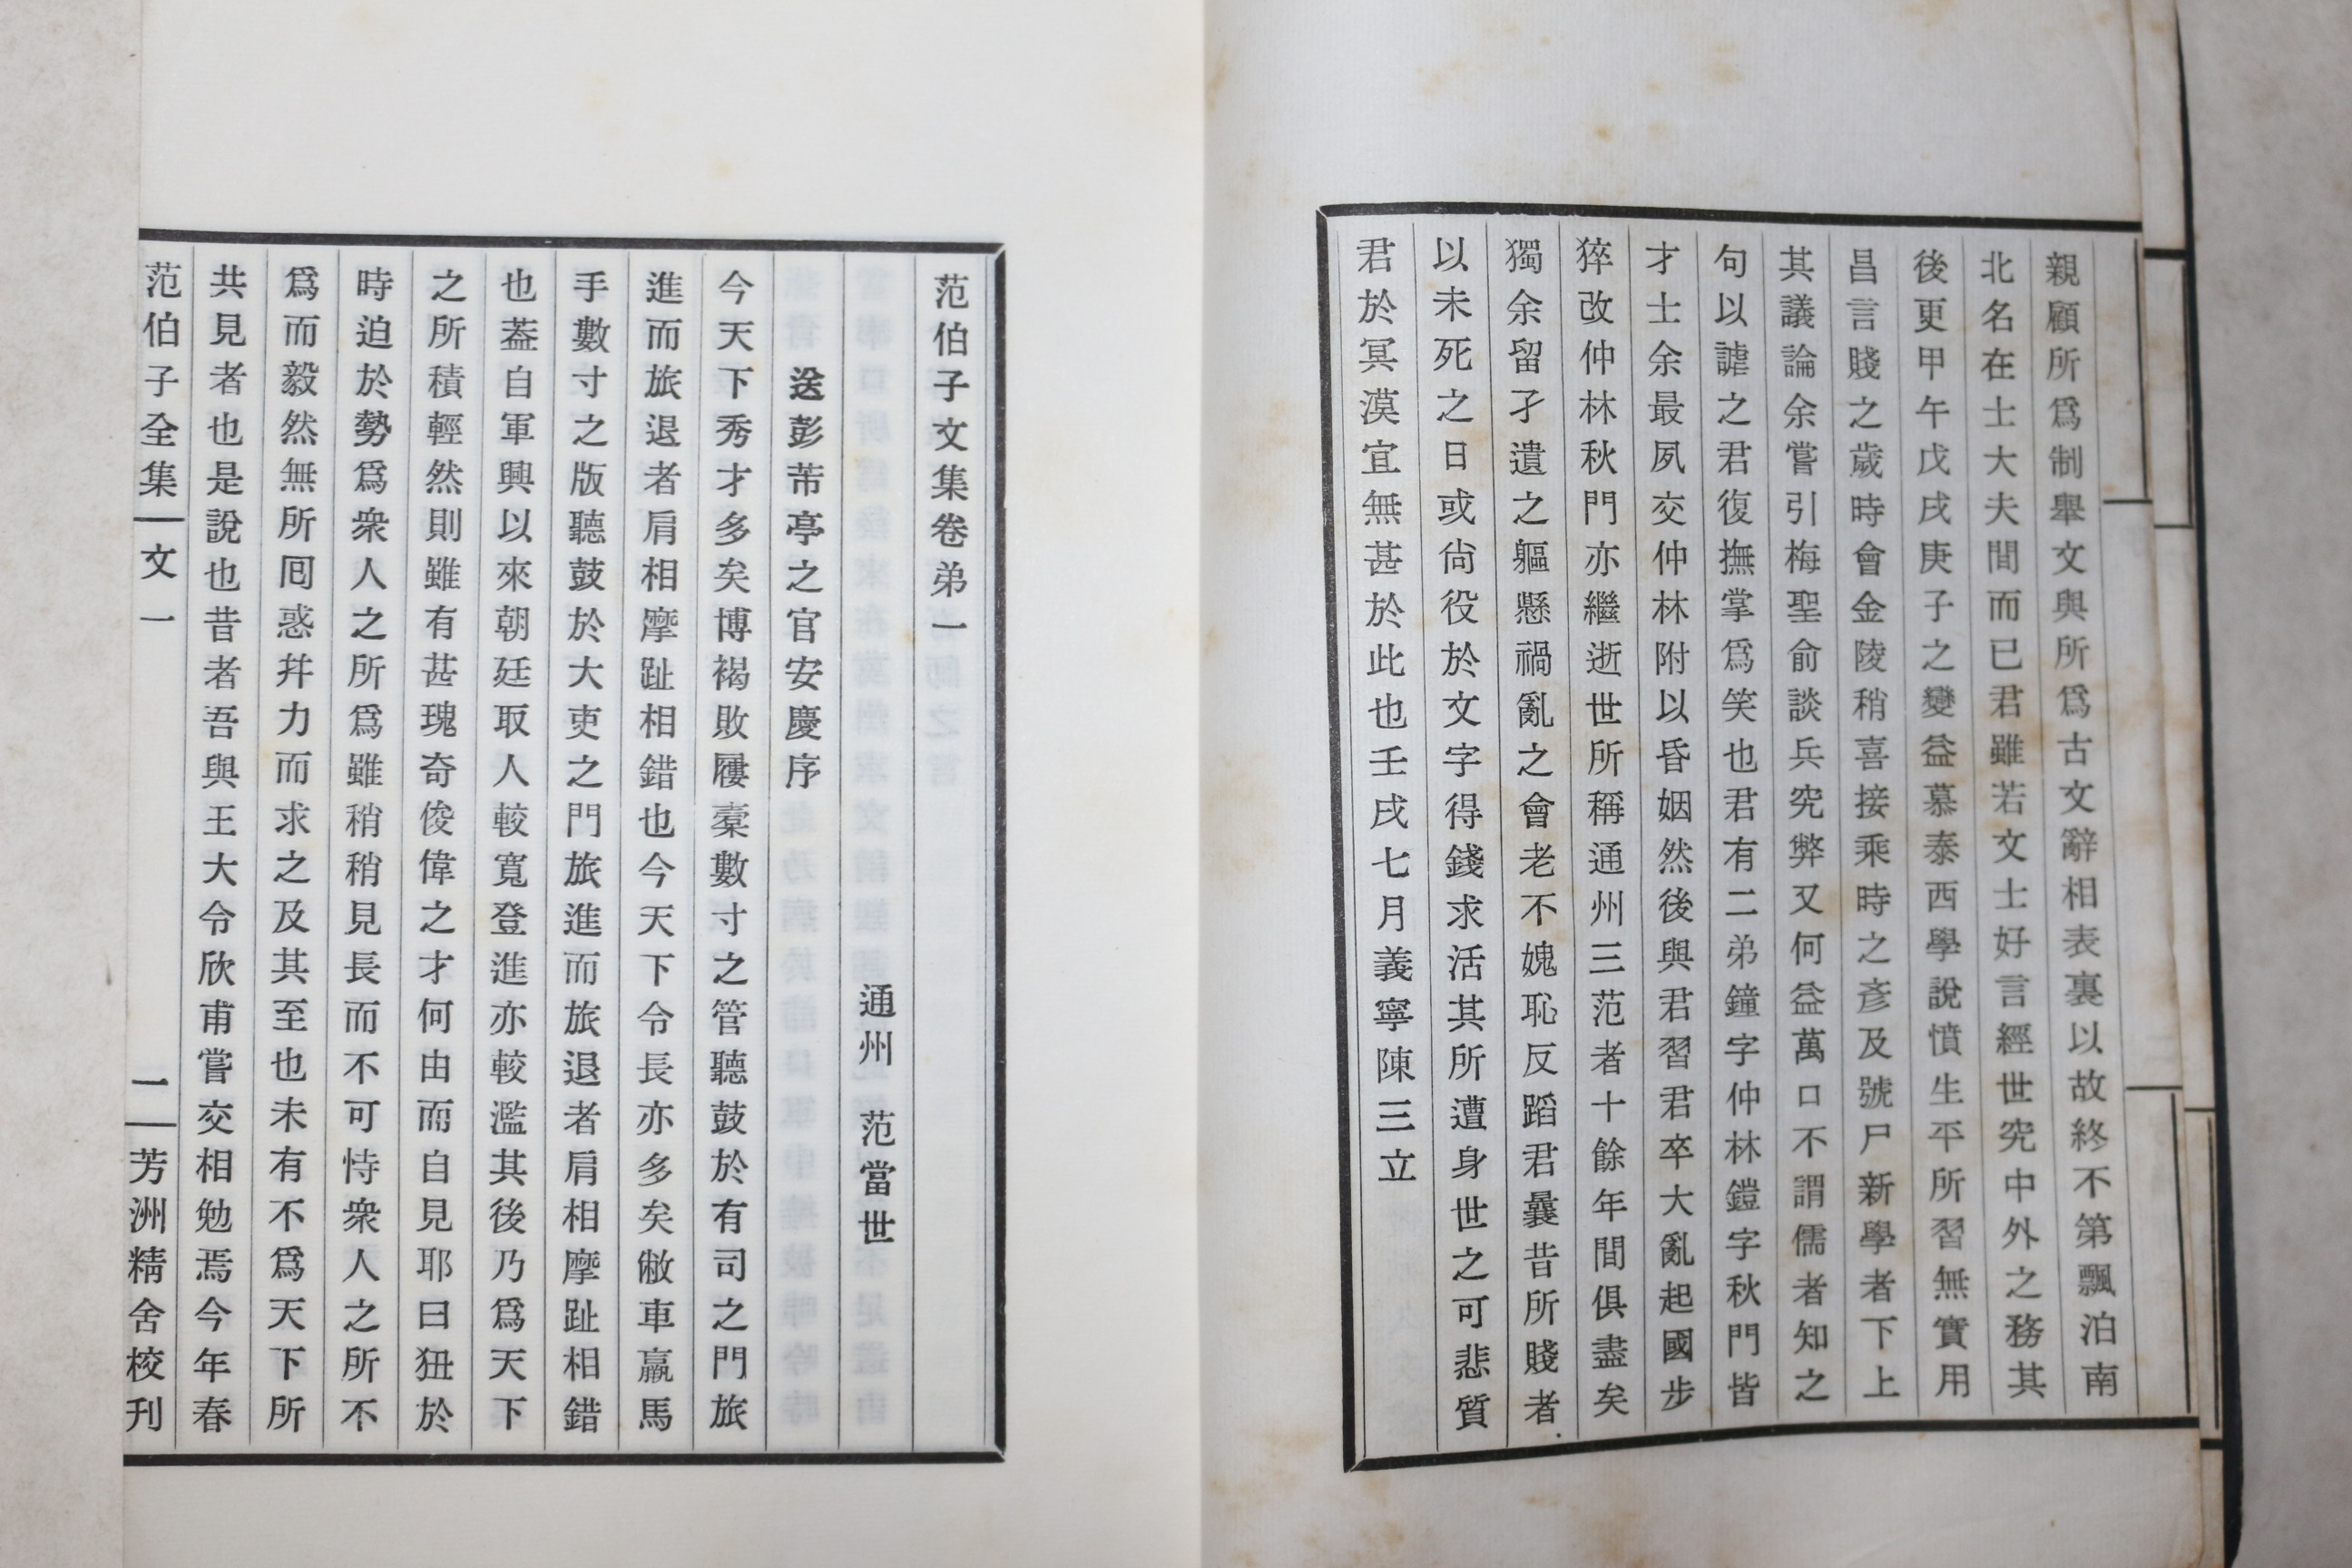 親顧所爲制舉文與所爲古文辭相表裏以故終不第飄泊南
北名在士大夫間而已君雖若文士好言經世究中外之務其
後更甲午戊戌庚子之變益慕泰西學說憤生平所習無實用
昌言賤之歲時會金陵稍喜接乘時之彥及號尸新學者下上
其議論余嘗引梅聖俞談兵究弊又何益萬口不謂儒者知之
句以謔之君復撫掌爲笑也君有二弟鐘字仲林鎧字秋門皆
才士余最夙交仲林附以昏姻然後與君習君卒大亂起國步
猝改仲林秋門亦繼逝世所稱通州三范者十餘年間俱盡矣
獨余留孑遺之軀懸禍亂之會老不媿恥反蹈君曩昔所賤者
以未死之日或尙役於文字得錢求活其所遭身世之可悲質
君於冥漠宜無甚於此也壬戌七月義寧陳三立
范伯子文集卷弟一
通州 范當世
送彭芾亭之官安慶序
今天下秀才多矣博褐敗屨槖數寸之管聽鼓於有司之門旅
進而旅退者肩相摩趾相錯也今天下令長亦多矣敝車羸馬
手數寸之版聽鼓於大吏之門旅進而旅退者肩相摩趾相錯
也葢自軍興以來朝廷取人較寬登進亦較濫其後乃爲天下
之所積輕然則雖有甚瑰奇俊偉之才何由而自見耶曰狃於
時迫於勢爲衆人之所爲雖稍稍見長而不可恃衆人之所不
爲而毅然無所囘惑幷力而求之及其至也未有不爲天下所
共見者也是說也昔者吾與王大令欣甫嘗交相勉焉今年春
范伯子全集 文一 一 芳洲精舍校刊